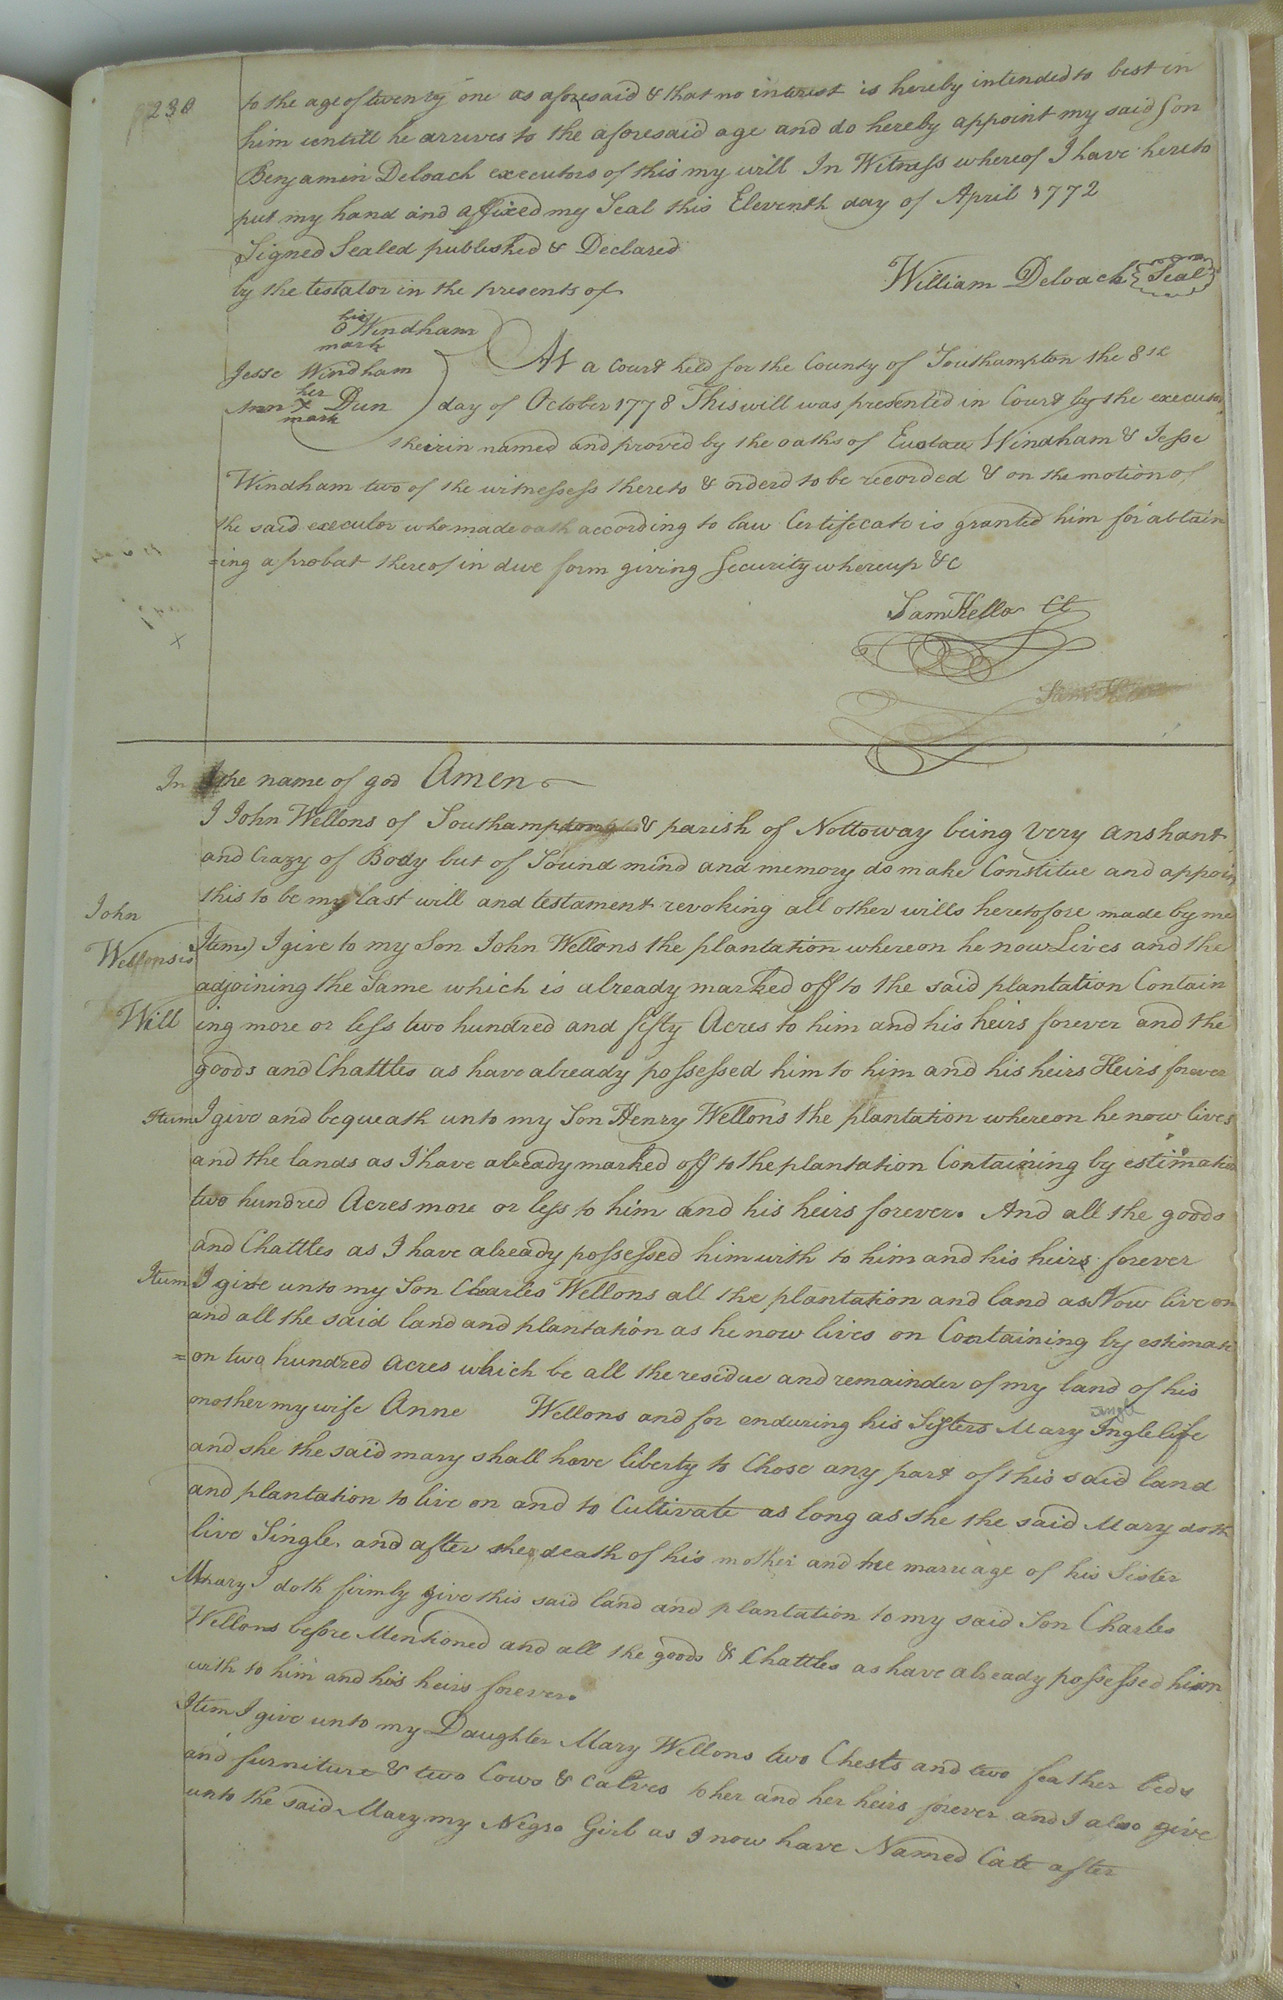 230
to the age of twenty one as aforesaid & that no interest is hereby intended to best in
him untill he arrives to the aforesaid age and do hereby appoint my said Son
Benjamin Deloach executors of this my will In Witness whereof I have hereto
put my hand and affixed my Seal this Eleventh day of April 1772
Signed Sealed published & Declared
by the testator in the presents of
William Deloach Seal
his
Windham
mark
Jesse Windham
her
Ann X Dun
mark
At a Court held for the County of Southampton the 8th
day of October 1778 This will was presented in Court by the executor
therin named and proved by the oaths of Windham & Jesse
Windham two of the witnessess thereto & orderd to be recorded & on the motion of
the said executor who made oath according to law Certifecate is granted him for abtain
=ing a probat thereof in due form giving Security whereup &c
Sam Kello Ct
In the name of god Amen
I John Wellons of Southampton & parish of Nottoway being very anshant
and Crazy of Body but of Sound mind and memory do make Constitue and appoin
this to be my last will and testament revoking all other wills heretofore made by me
John
Wellons's
Will
Item I give to my Son John Wellons the plantation whereon he now Lives and the
adjoining the Same which is already marked off to the said plantation Contain
ing more or less two hundred and fifty Acres to him and his heirs forever and the
goods and Chattles as have already possessed him to him and his heirs Heirs forever
Item I give and bequeath unto my Son Henry Wellons the plantation whereon he now lives
and the lands as I have already marked off to the plantation Containing by estimation
two hundred Acres more or less to him and his heirs forever. And all the goods
and Chattles as I have already possessed him with to him and his heirs forever
Item I give unto my Son Charles Wellons all the plantation and land as Now live on
and all the said land and plantation as he now lives on Containing by estimati
=on two hundred Acres which be all the residue and remainder of my land of his
mother my wife Anne Wellons and for enduring his Sisters Mary Single life
and she the said mary shall have liberty to Chose any part of this said land
and plantation to live on and to Cultivate as long as she the said Mary doth
live Single. and after the death of his mother and the marriage of his Sister
Mary I doth firmly give this said land and plantation to my said Son Charles
Wellons before Mentioned and all the goods & Chattles as have already possessed him
with to him and his heirs forever.
Item I give unto my Daughter Mary Wellons two Chests and two feather beds
and furniture & two Cows & calves to her and her heirs forever and I also give
unto the said Mary my Negro Girl as I now have Named Cate after